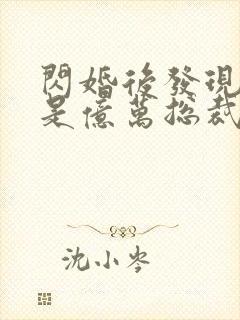 閃婚後發現
是億萬總裁
沈小岑